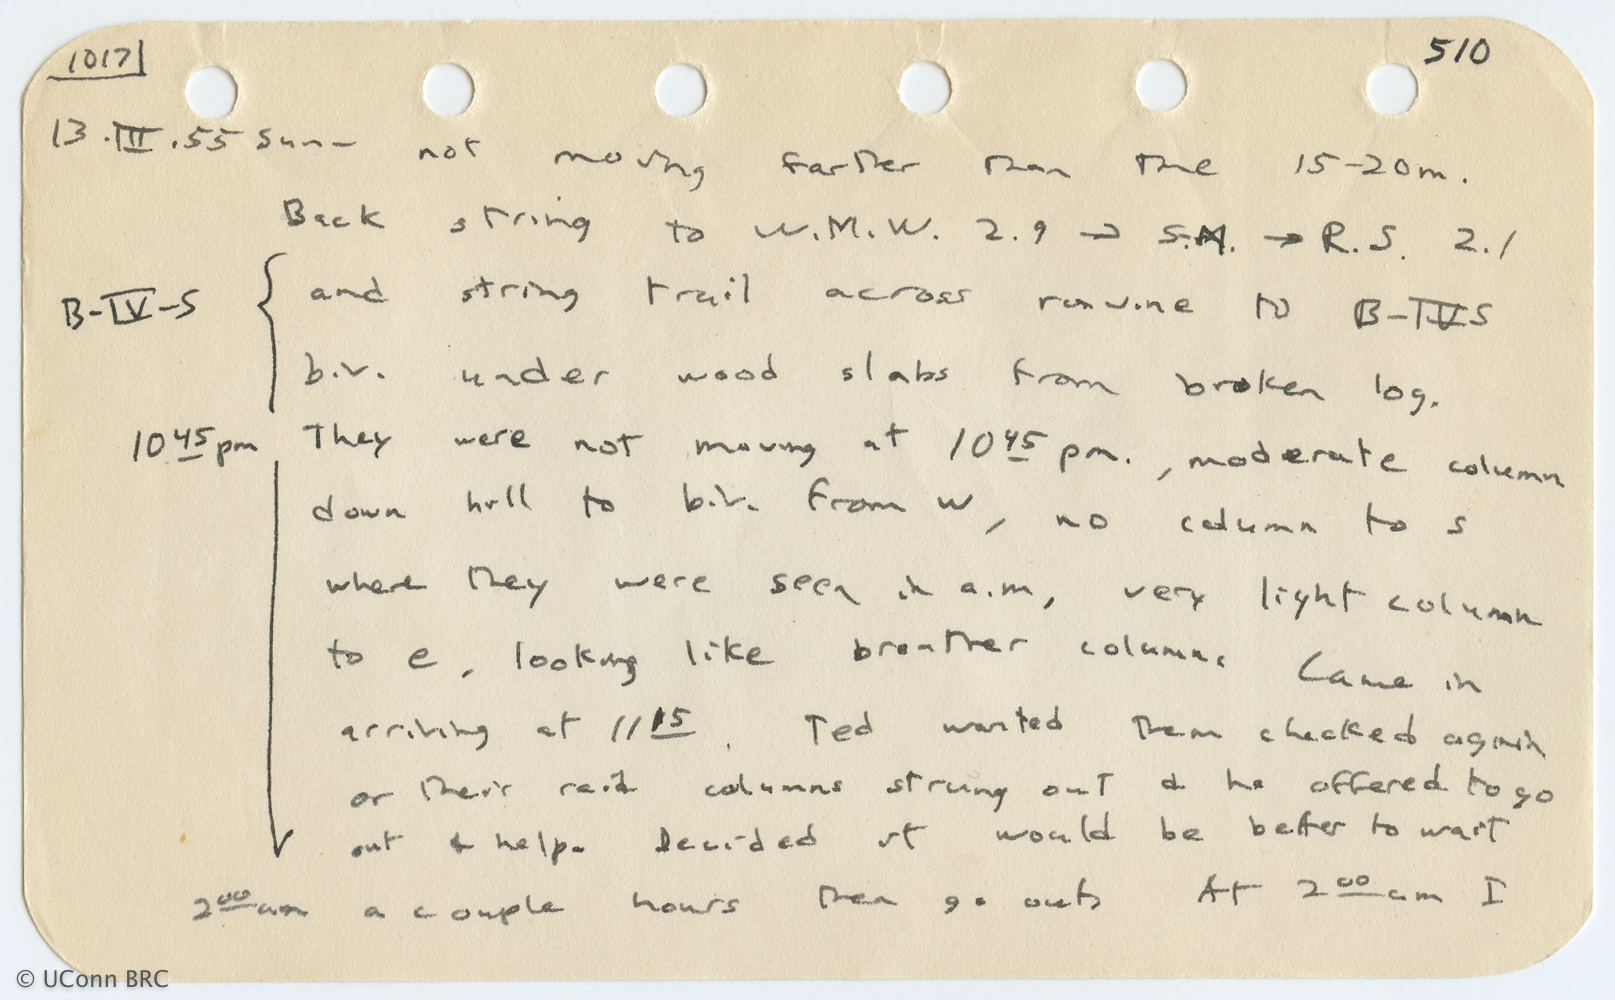 1017 510
13.III.55 Sun- not moving farther than the 15-20m.
Back string to W.M.W. 2.9 → → R.S. 2.1
B-IV-S and string trail across ravine to B-IVS
b.v. under wood slabs from broken log.
10 45 pm They were not moving at 10 45 pm., moderate column
down hill to b.v. from w, no column to s
where they were seen in a.m, very light column
to e, looking like breather column. Came in
arriving at 11 15. Ted wanted them checked again
or their raid columns strung out & he offered to go
out & help. Decided it would be better to wait
2 00 am a couple hours then go out. At 2 00 am I
© UConn BRC